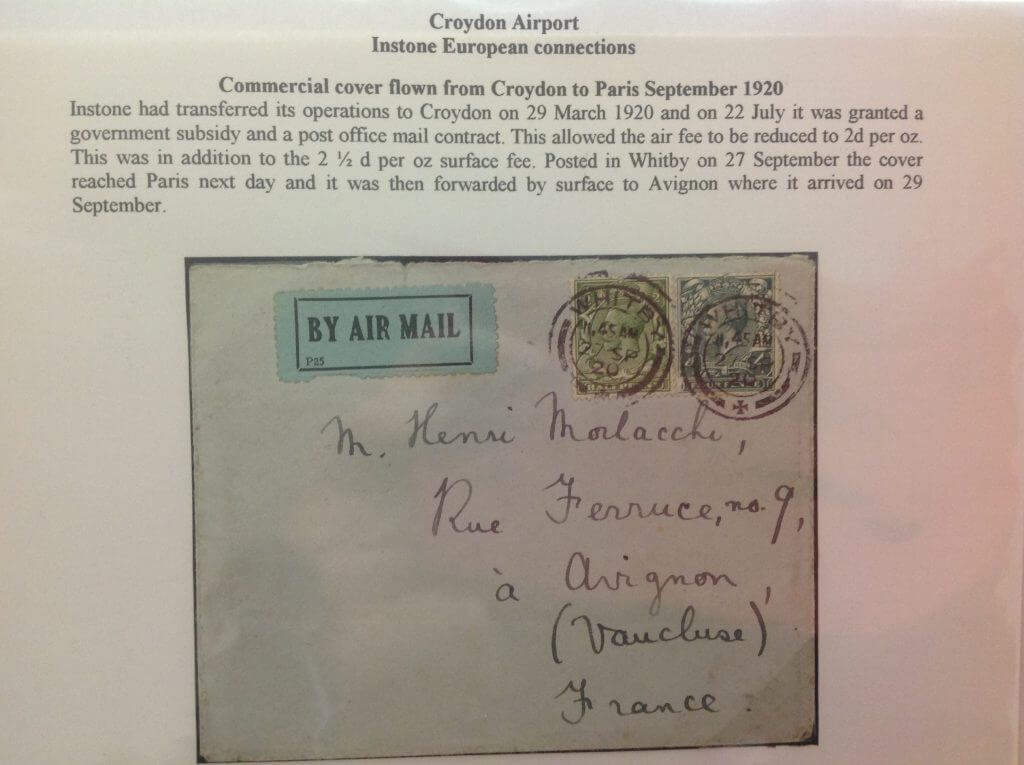 Croydon Airport
Instone European connections
Commercial cover flown from Croydon to Paris September 1920
Instone had transferred its operations to Croydon on 29 March 1920 and on 22 July it was granted a
government subsidy and a post office mail contract. This allowed the air fee to be reduced to 2d per oz.
This was in addition to the 2 ½ d per oz surface fee. Posted in Whitby on 27 September the cover
reached Paris next day and it was then forwarded by surface to Avignon where it arrived on 29
September.
BY AIR MAIL
P25
WHITBY
11.45AM
27 SP
20
WHITBY
11.45AM
M. Henri Morlacchi,
Rue Ferruce, no. 9,
à Avignon,
(Vaucluse)
France.